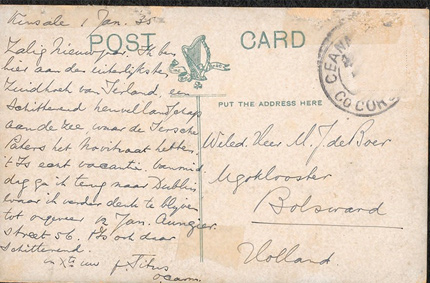 Kinsale 1 Jan. 35
POST CARD
Zalig Nieuwjaar. Ik ben
hier aan den uiterlijksten
Zuidhoek van Ierland, een
Schitterend heuvellandschap
aan de zee, waar de Iersche
Paters het Novitiaat hebben.
't Is een vacantie. Vanmid
dag ga ik terug naar Dublin
waar ik verder denk te blijven
tot ongeveer 12 Jan. Aungier
Street 56. 't Is ook daar
Schitterend.
in Xto uw fr. Titus
o.carm.
PUT THE ADDRESS HERE
CO CORC
Weled. Heer M. J. de Boer
Ugoklooster
Bolsward
Holland.